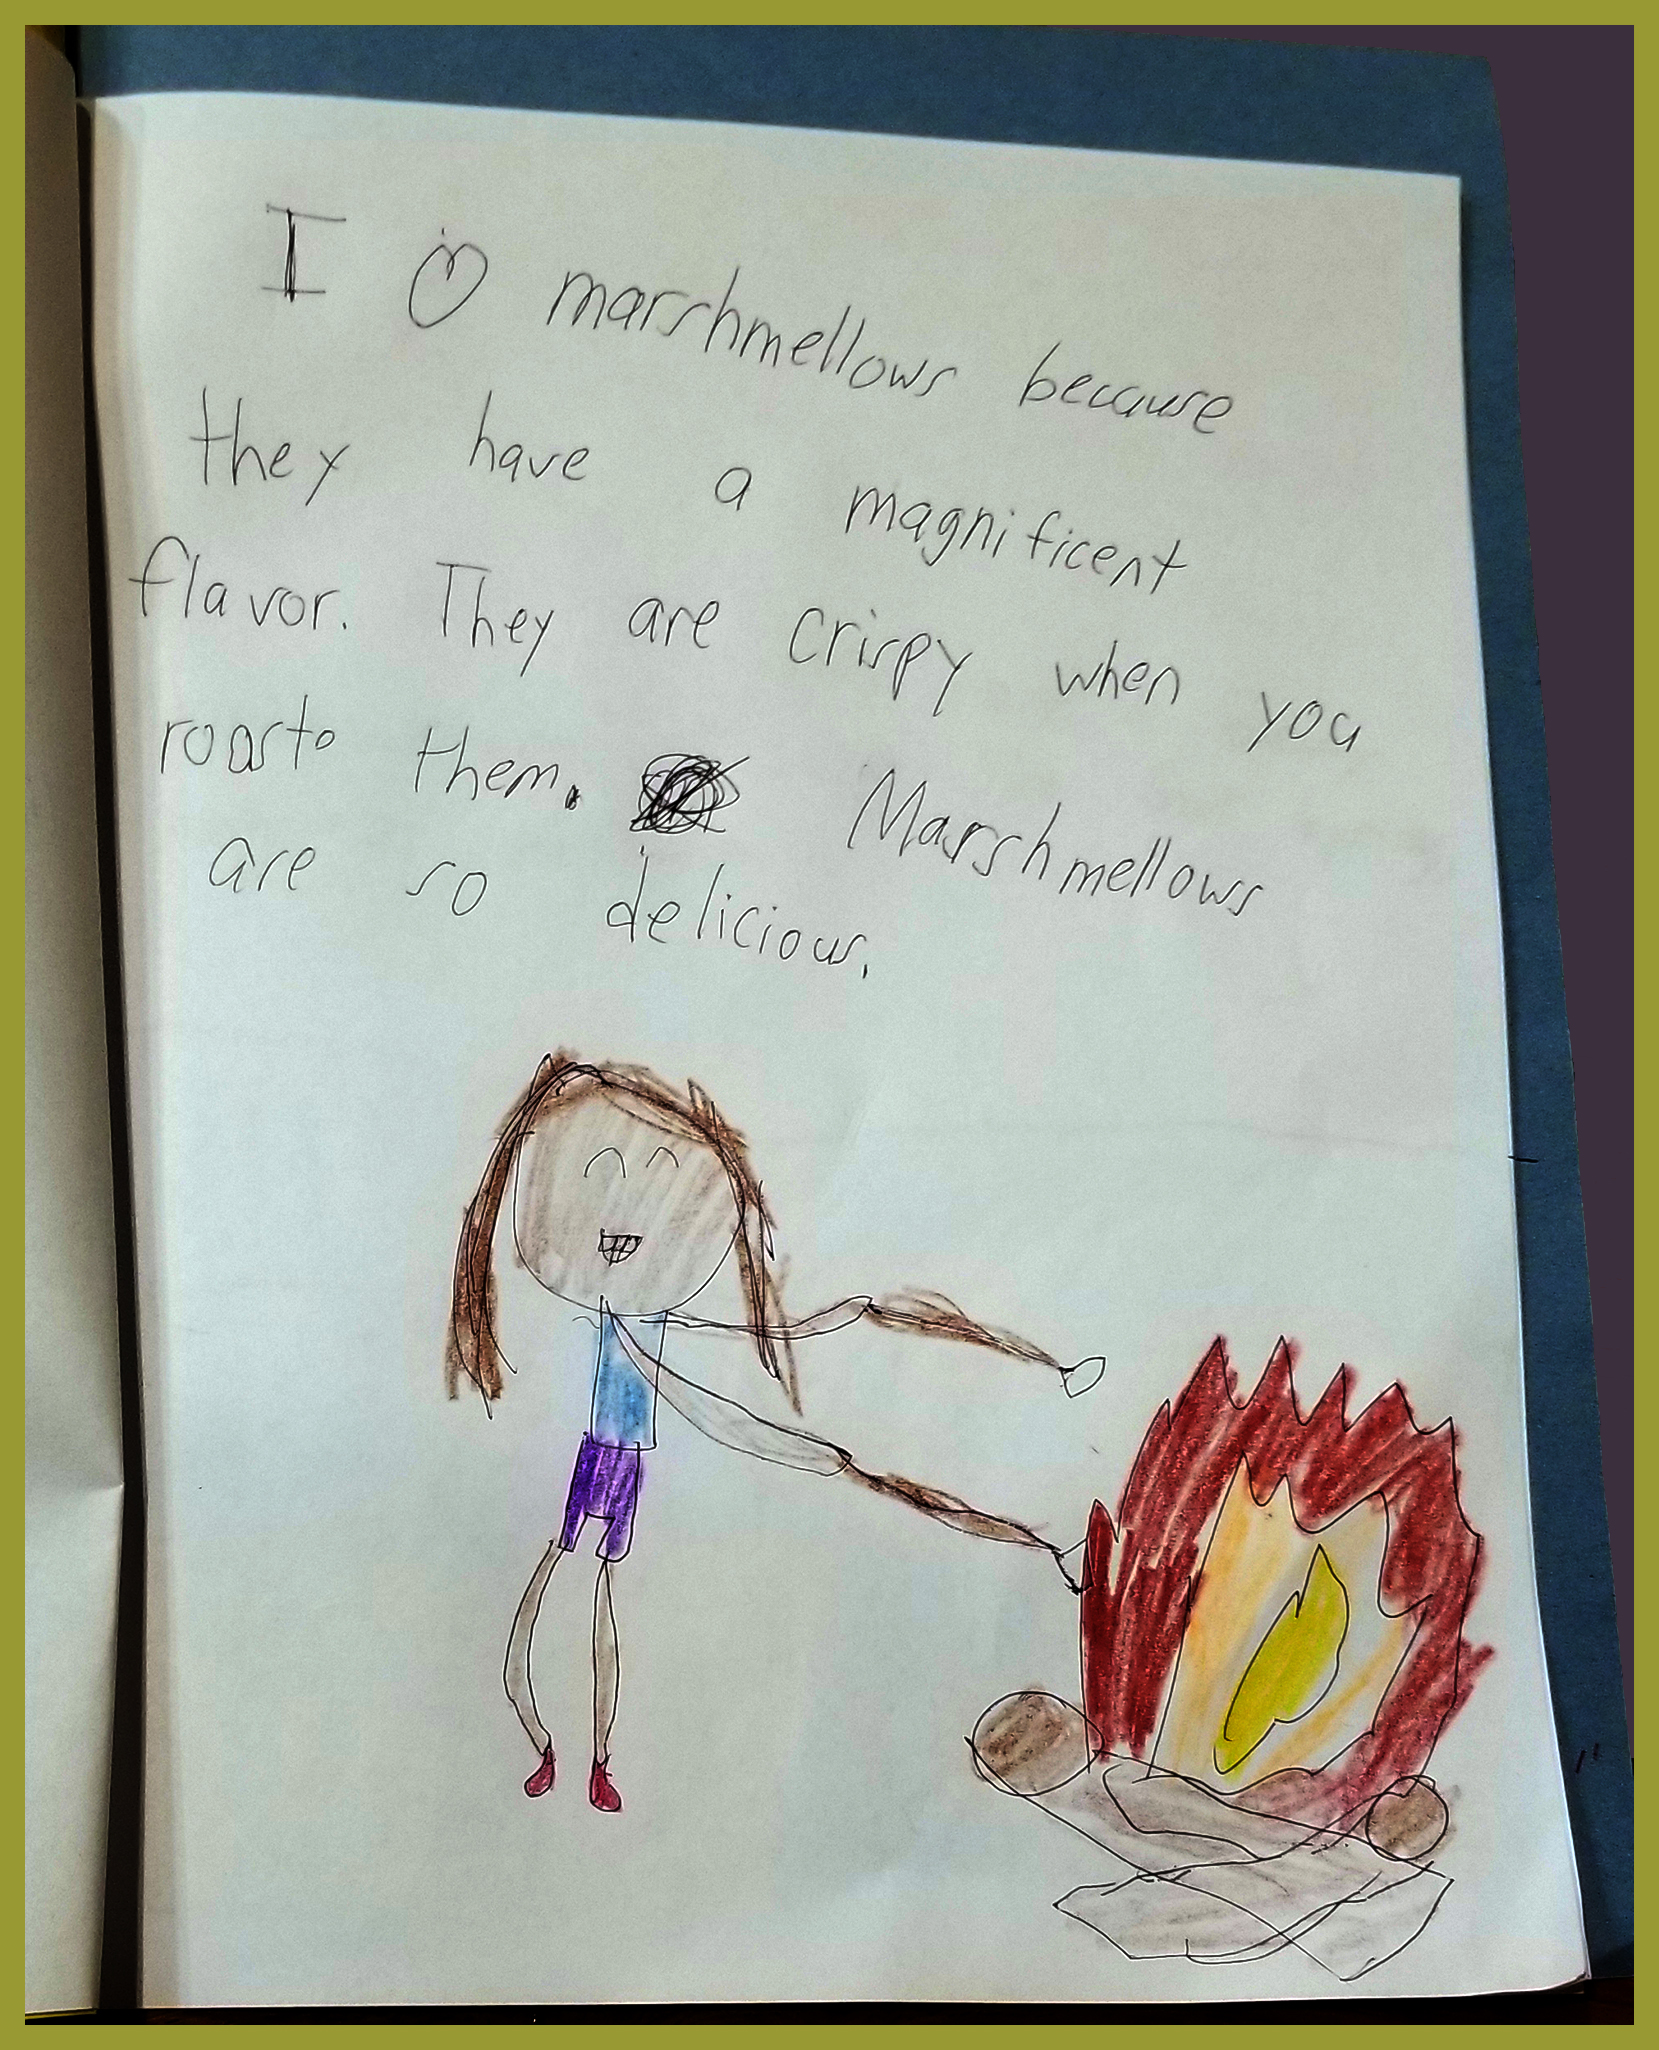 I ♡ marshmellows because
they have a magnificent
flavor. They are crispy when you
roasto them. Marshmellows
are so delicious.